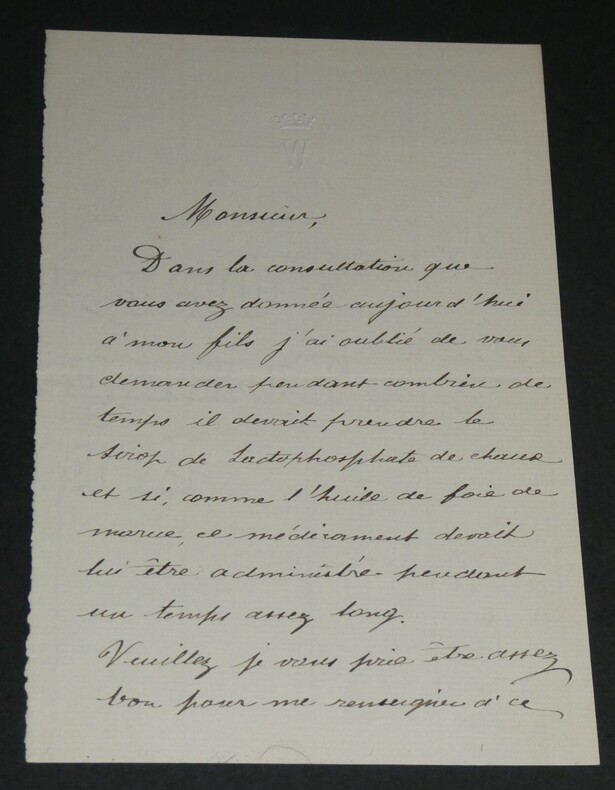 W
Monsieur,
Dans la consultation que
vous avez donnée aujourd'hui
à mon fils j'ai oublié de vous
demander pendant combien de
temps il devait prendre le
sirop de Lactophosphate de chaux
et si, comme l'huile de foie de
morue, ce médicament devait
lui être administré pendant
un temps assez long.
Veuillez je vous prie être assez
bon pour me renseigner à ce